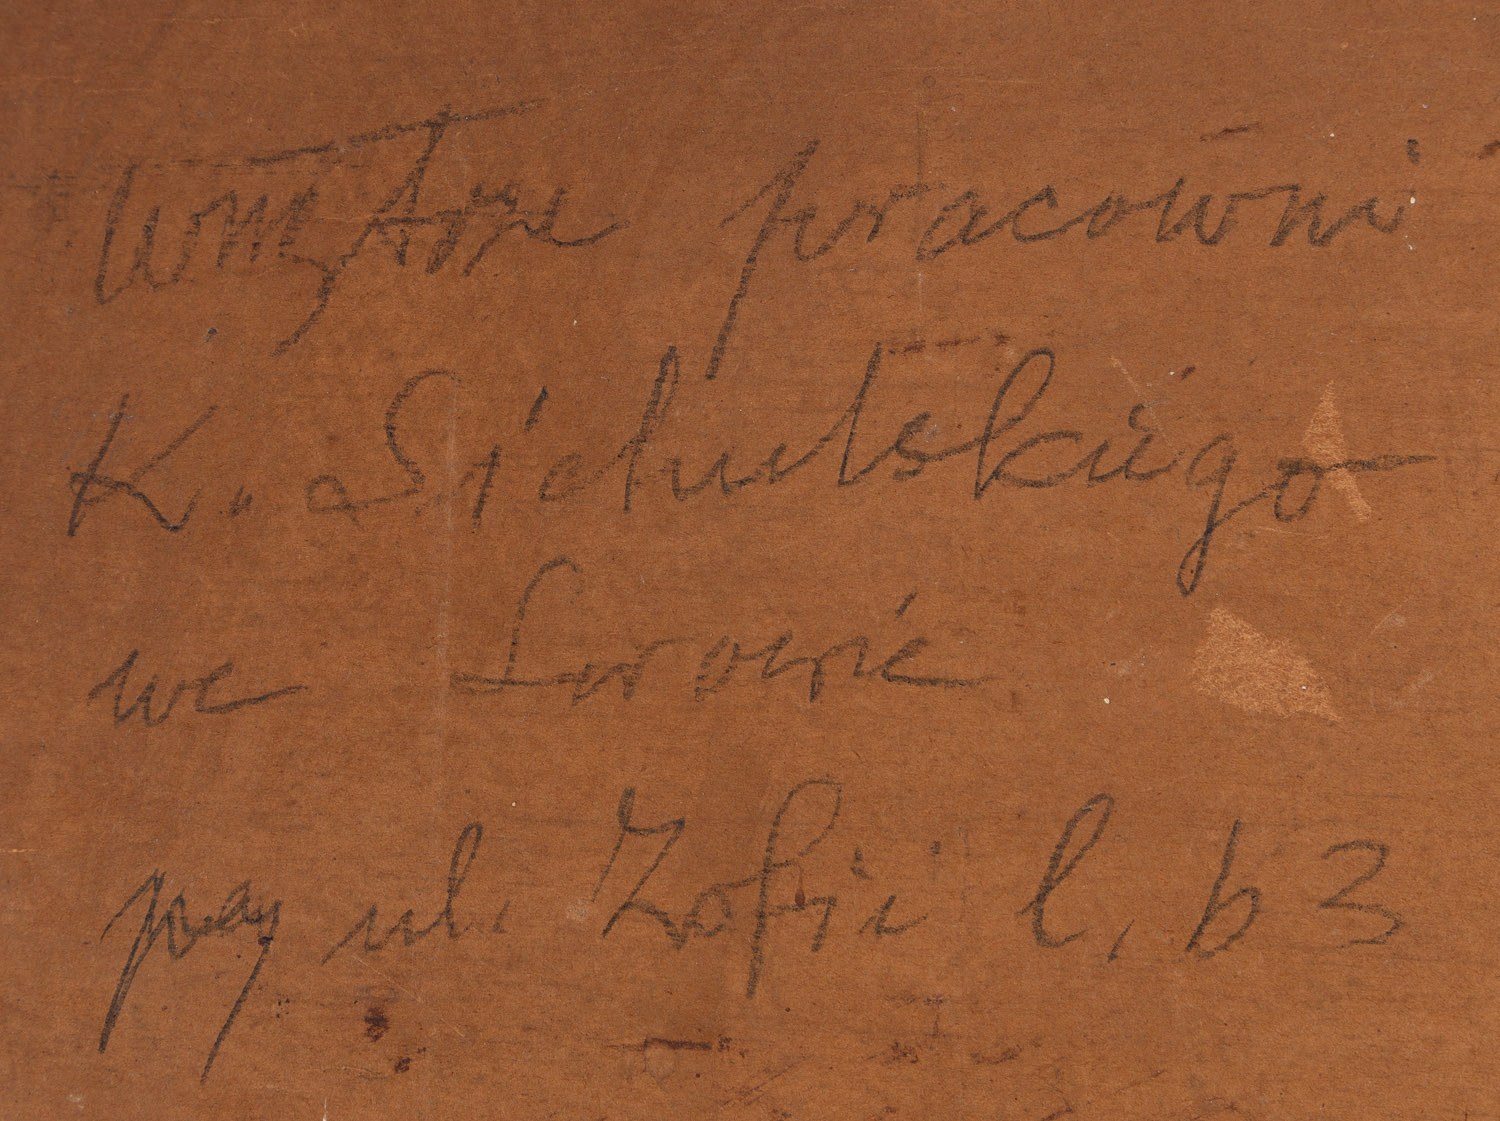 Wnętrze pracowni
K. Sichulskiego
we Lwowie
przy ul. Zofii l. b3